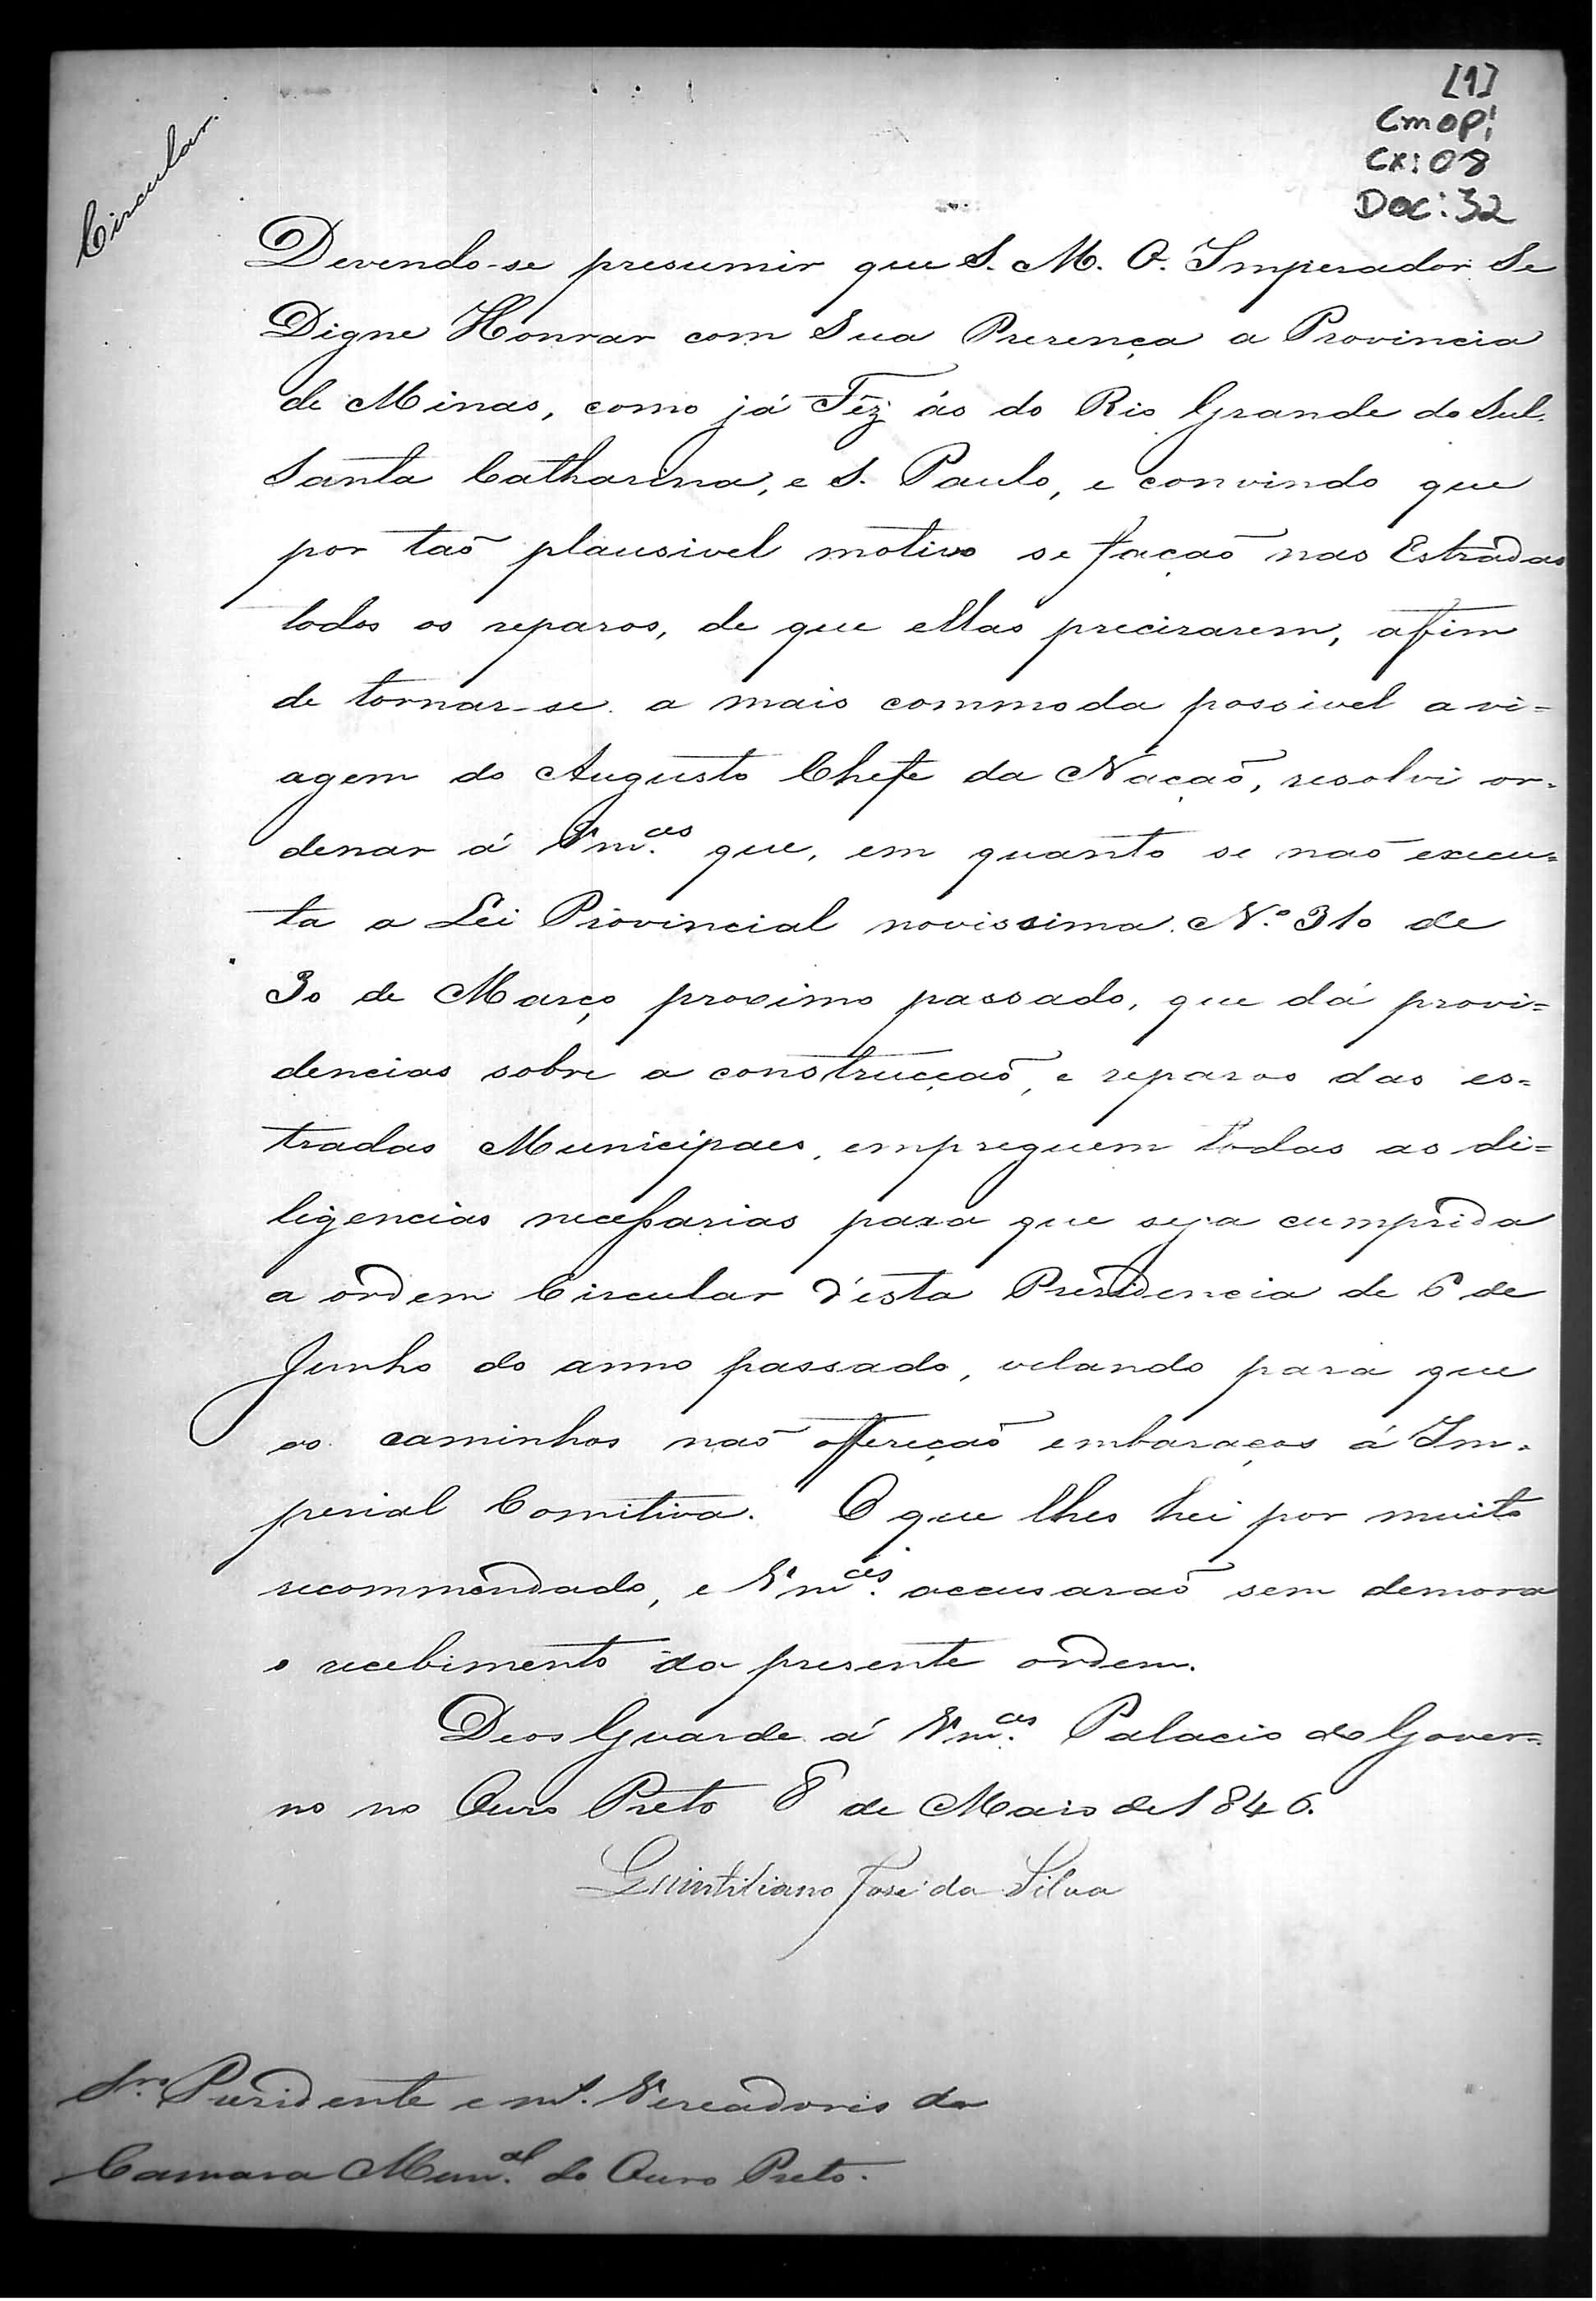 [1]
CMOP:
CX: 08
Doc: 32
Circular.
Devendo-se presumir que S. M. O. Imperador Se
Digne Honrar com Sua Presença a Provincia
de Minas, como já Fêz ás do Rio Grande do Sul,
Santa Catharina, e S. Paulo, e convindo que
por taõ plausivel motivo se façaõ nas Estradas
todos os reparos, de que ellas precizarem, afim
de tornar-se a mais commoda possivel a vi=
agem do Augusto Chefe da Naçaõ, resolvi or=
denar á Vm.ces que, em quanto se naõ execu=
ta a Lei Provincial novissima N.º 310 de
30 de Março proximo passado, que dá provi=
dencias sobre a construcçaõ, e reparos das es=
tradas Municipaes, empreguem todas as di=
ligencias necessarias para que seja cumprida
a ordem Circular d'esta Presidencia de 6 de
Junho do anno passado, velando para que
os caminhos naõ offereçaõ embaraços á Im=
perial Comitiva. O que lhes hei por muito
recommendado, e Vm.ces accusaraõ sem demora
o recebimento da presente ordem.
Deos Guarde á Vm.ces Palacio do Gover=
no no Ouro Preto 8 de Maio de 1846.
Quintiliano José da Silva
Snr.s Presidente e m.s Vereadores da
Camara Mun.al do Ouro Preto.